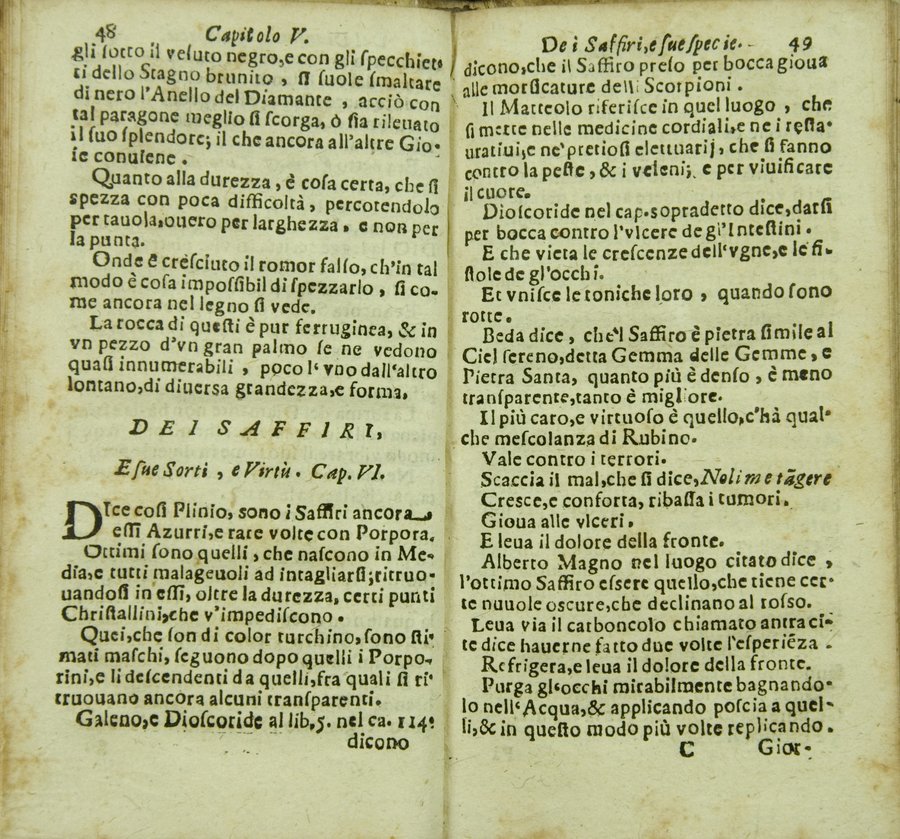 48 Capitolo V.
gli ſotto il veſuto negro,e con gli ſpecchiet-
ti dello Stagno brunito , ſi ſuole ſmaltare
di nero l'Anello del Diamante , acciò con
tal paragone meglio ſi ſcorga, ò ſia rileuato
il ſuo ſplendore; il che ancora all'altre Gio-
ie conuiene .
Quanto alla durezza , è coſa certa, che ſi
spezza con poca difficoltà , percotendolo
per tauola,ouero per larghezza , e non per
la punta.
Onde è creſciuto il romor falſo, ch'in tal
modo è coſa impoſſibil di ſpezzarlo , ſi co-
me ancora nel legno ſi vede.
La rocca di queſti è pur ferruginea, & in
vn pezzo d'vn gran palmo ſe ne vedono
quaſi innumerabili , poco l'vno dall'altro
lontano,di diuersa grandezza,e forma.
DEI SAFFIRI,
E ſue Sorti , e Virtù. Cap. VI.
DIce coſi Plinio, sono i Saffiri ancora
eſſi Azurri,e rare volte con Porpora.
Ottimi ſono quelli , che naſcono in Me-
dia,e tutti malageuoli ad intagliarſi;ritruo-
uandoſi in eſſi, oltre la durezza, certi punti
Chriſtallini,che v'impediſcono .
Quei,che ſon di color turchino,ſono ſti-
mati maſchi, ſeguono dopo quelli i Porpo-
rini,e li deſcendenti da quelli,fra quali ſi ri-
truouano ancora alcuni tranſparenti.
Galeno,e Dioſcoride al lib.5. nel ca. 114.
dicono
De i Saffiri,e ſue ſpecie. 49
dicono,che il Saffiro preſo per bocca gioua
alle morſicature delli Scorpioni .
Il Matteolo riferiſce in quel luogo , che
ſi mette nelle medicine cordiali,e ne i reſta-
uratiui,e ne' pretioſi elettuarij, che ſi fanno
contro la peſte , & i veleni; e per viuificare
il cuore.
Dioſcoride nel cap.sopradetto dice,darſi
per bocca contro l'vlcere de gl'Inteſtini .
E che vieta le creſcenze dell'vgne,e le fi-
ſtole de gl'occhi.
Et vniſce le toniche loro , quando ſono
rotte.
Beda dice , che'l Saffiro è pietra ſimile al
Ciel ſereno,detta Gemma delle Gemme, e
Pietra Santa, quanto più è denſo , è meno
tranſparente,tanto è migliore.
Il più caro,e virtuoſo è quello,c'hà qual-
che meſcolanza di Rubino.
Vale contro i terrori.
Scaccia il mal,che ſi dice,Noli me tãgere
Creſce,e conforta, ribaſſa i tumori.
Gioua alle vlceri .
E leua il dolore della fronte.
Alberto Magno nel luogo citato dice ,
l'ottimo Saffiro eſſere quello,che tiene cer-
te nuuole oscure,che declinano al roſſo.
Leua via il carboncolo chiamato antraci-
te dice hauerne fatto due volte l'eſperiẽza .
Refrigera,e leua il dolore della fronte.
Purga gl'occhi mirabilmente bagnando-
lo nell'Acqua,& applicando poſcia a quel-
li,& in queſto modo più volte replicando.
C Gio-